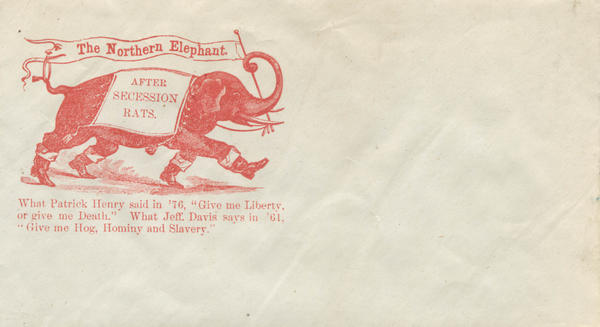 The Northern Elephant.
AFTER
SECESSION
RATS.
What Patrick Henry said in '76, "Give me Liberty,
or give me Death." What Jeff. Davis says in '61,
"Give me Hog, Hominy and Slavery."